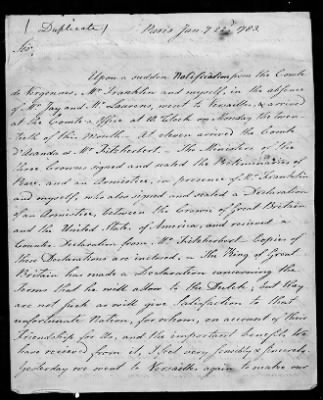 (Duplicate)
Paris Jany 22d 1783.
Sir,
Upon a sudden Notification from the Comte
de Vergennes, Mr Franklin and myself, in the absence
of Mr Jay and Mr Laurens, went to Versailles, & arrived
at the Comte's Office at 10 Clock on Monday the twen-
tieth of this Month — At eleven arrived the Comte
d'Aranda & Mr Fitzherbert. — The Ministers of the
three Crowns signed and sealed the Preliminaries of
Peace, and an Armistice, in presence of Mr Franklin
and myself, who also signed and sealed a Declaration
of an Armistice, between the Crown of Great Britain
and the United States of America, and received a
Counter Declaration from Mr Fitzherbert — Copies of
these Declarations are inclosed. — The King of Great
Britain has made a Declaration concerning the
Terms that he will allow to the Dutch, but they
are not such as will give Satisfaction to that
unfortunate Nation, for whom, on account of their
Friendship for Us, and the important benefits We
have received from it, I feel very sensibly & sincerely.
Yesterday we went to Versailles again to make our